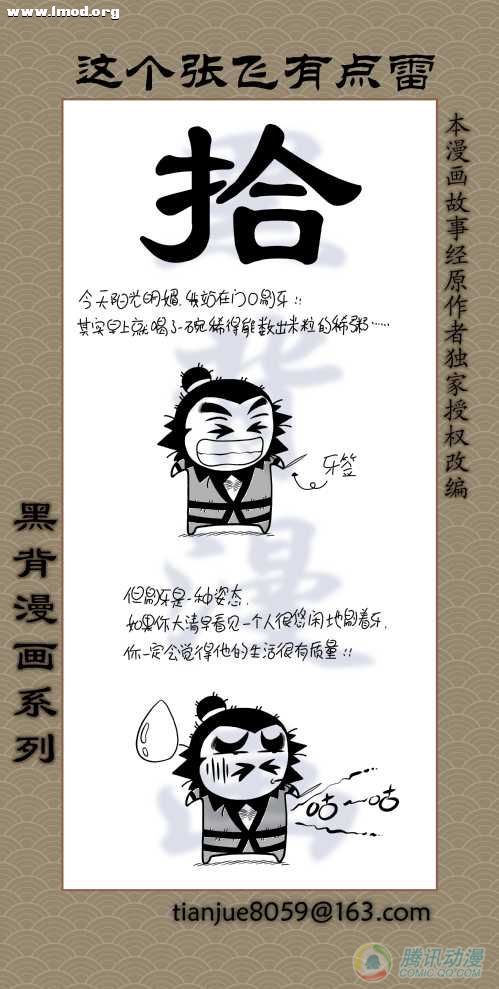 www.lmod.org
这个张飞有点雷
拾
本漫画故事经原作者独家授权改编
今天阳光明媚,我站在门口刷牙!!
其实早上就喝了一碗稀得能数出米粒的稀粥……
牙签
黑背漫画系列
但刷牙是一种姿态,
如果你大清早看见一个人很悠闲地刷着牙,
你一定会觉得他的生活很有质量!!
咕~咕
tianjue8059@163.com
腾讯动漫
COMIC.QQ.COM